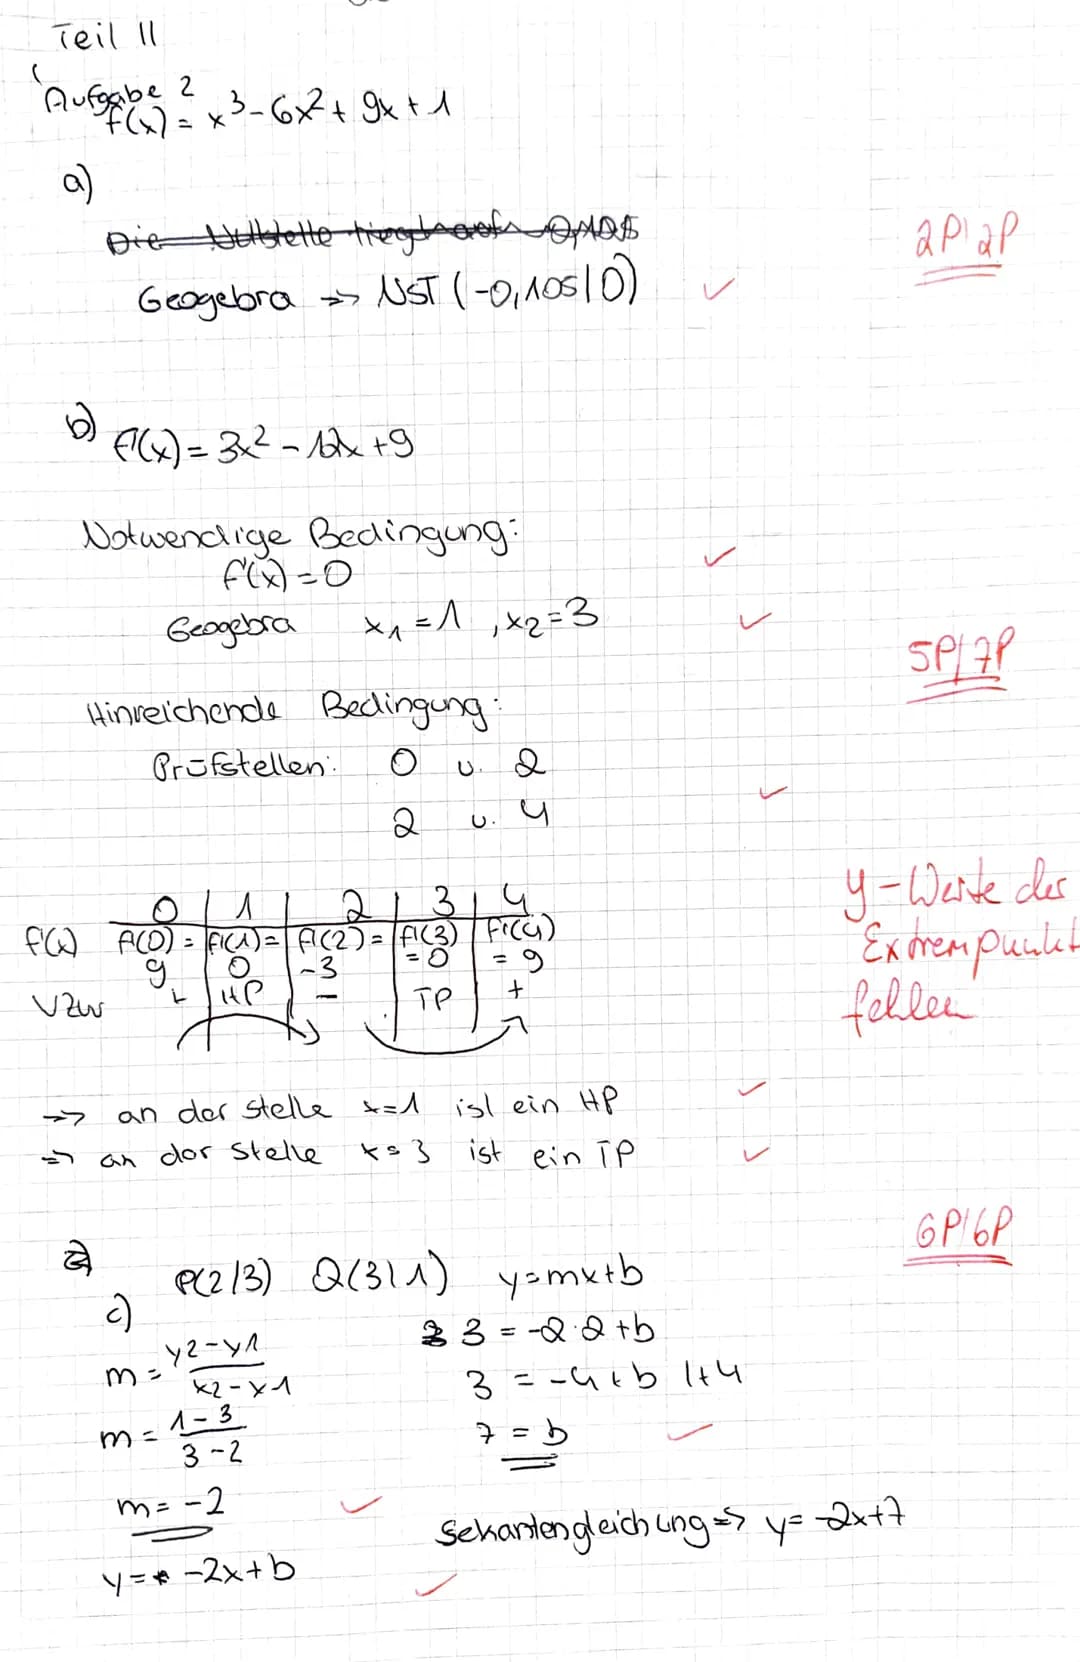 Teil II
Aufgabe 2
f(x) = x³ - 6x² + 9x + 1
a)
Die Nullstelle liegt auf -0,105
2P/2P
Geogebra => NST (-0,105|0) ✓
b) f'(x) = 3x² - 12x + 9
Notwendige Bedingung:
f'(x) = 0 ✓
Geogebra x₁ = 1 , x₂ = 3 ✓
5P/7P
Hinreichende Bedingung:
Prüfstellen: 0 u. 2
2 u. 4 ✓
0 | 1 | 2 | 3 | 4
f'(x) f'(0) = 9 | f'(1) = 0 | f'(2) = -3 | f'(3) = 0 | f'(4) = 9
VZW + | HP | - | TP | +
y-Werte der
Extrempunkt
fehlen
=> an der Stelle x=1 ist ein HP ✓
=> an der Stelle x=3 ist ein TP ✓
6P/6P
c)
P(2/3) Q(3|1) y=mx+b
m = y2-y1 / x2-x1
m = 1-3 / 3-2
m = -2 ✓
y = -2x+b
3 = -2·2+b
3 = -4+b |+4
7 = b ✓
Sekantengleichung => y= -2x+7
✓